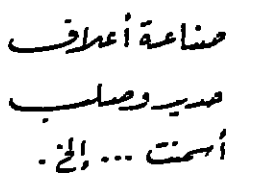 صناعة أعلاف
حديد وصلب
أسمنت ... إلخ .